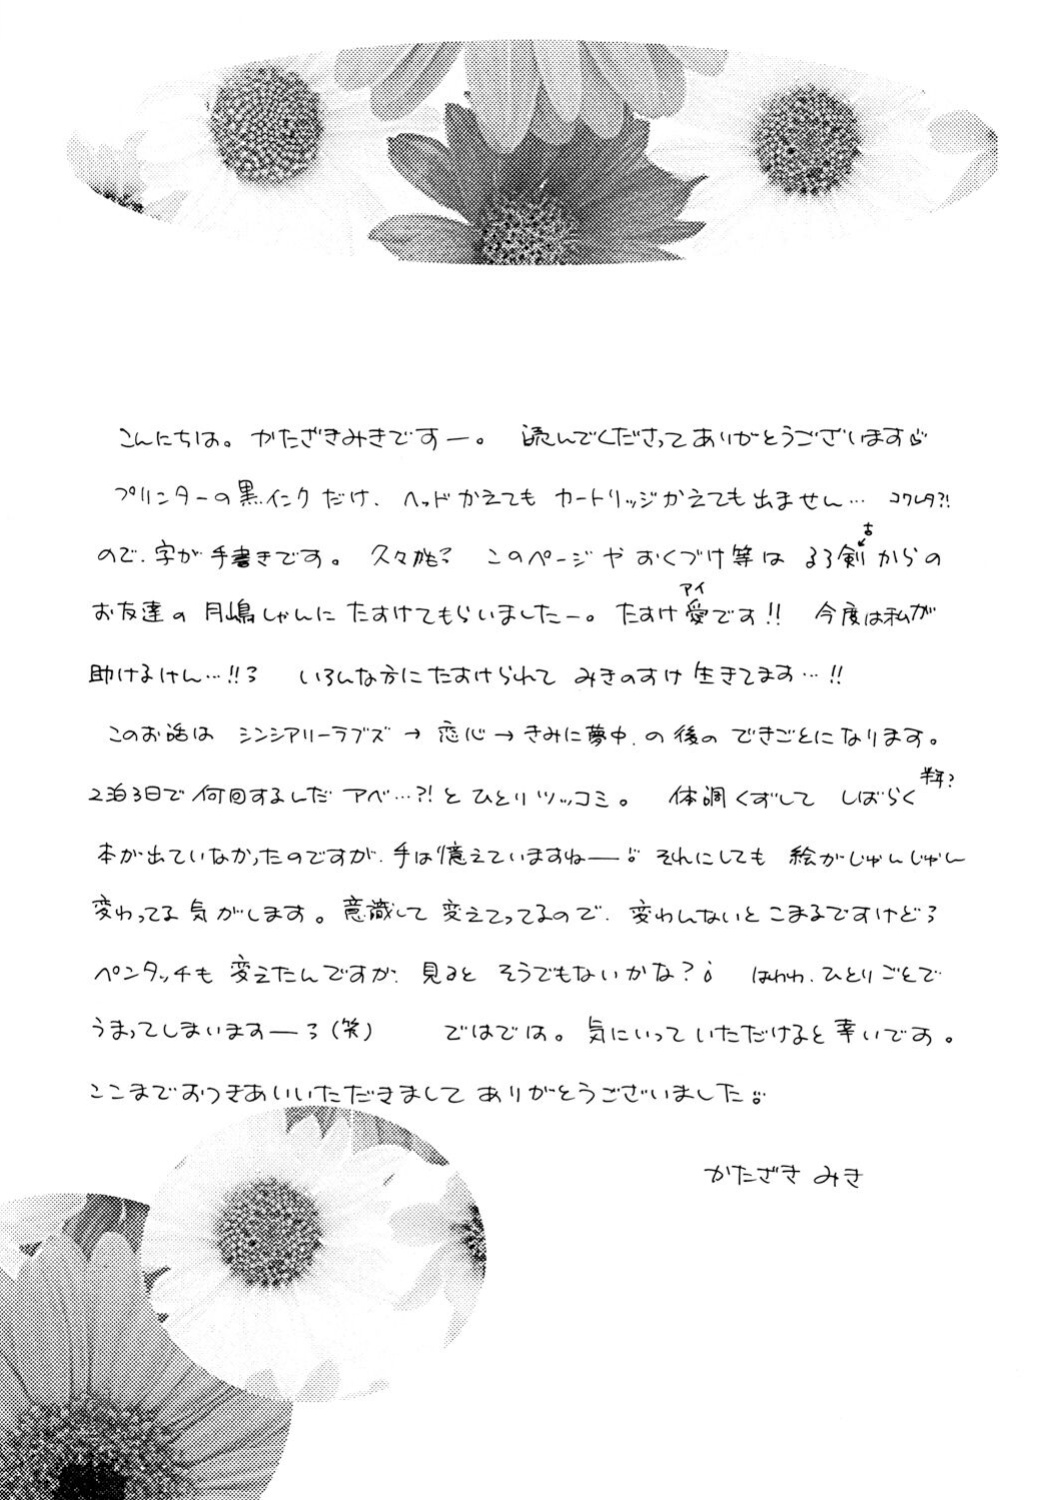 こんにちは。かたざきみきですー。 読んでくださってありがとうございます
プリンターの黒インクだけ、ヘッドかえても カートリッジかえても出ません… コワレタ?!
ので、字が手書きです。 久々かも? このページや おくづけ等は るろ剣からの
古
お友達の 月嶋しゃんに たすけてもらいましたー。 たすけ愛です!! 今度は私が
アイ
助けるけん…!!ろ いろんな方に たすけられて みきのすけ 生きてます…!!
このお話は シンシアリーラブズ → 恋心 → きみに夢中、の後の できごとになります。
2泊3日で 何回するんだ アベ…?!と ひとりツッコミ。 体調くずして しばらく
半年?
本が出ていなかったのですが、手は憶えていますねー それにしても 絵がじゅんじゅん
変わってる気がします。意識して 変えてってるので、変わんないと こまるですけどろ
ペンタッチも 変えたんですが、見ると そうでもないかな? はわわ、ひとりごとで
うまってしまいますーろ(笑) ではでは。気にいって いただけると幸いです。
ここまでおつきあいいただきまして ありがとうございました
かたざき みき